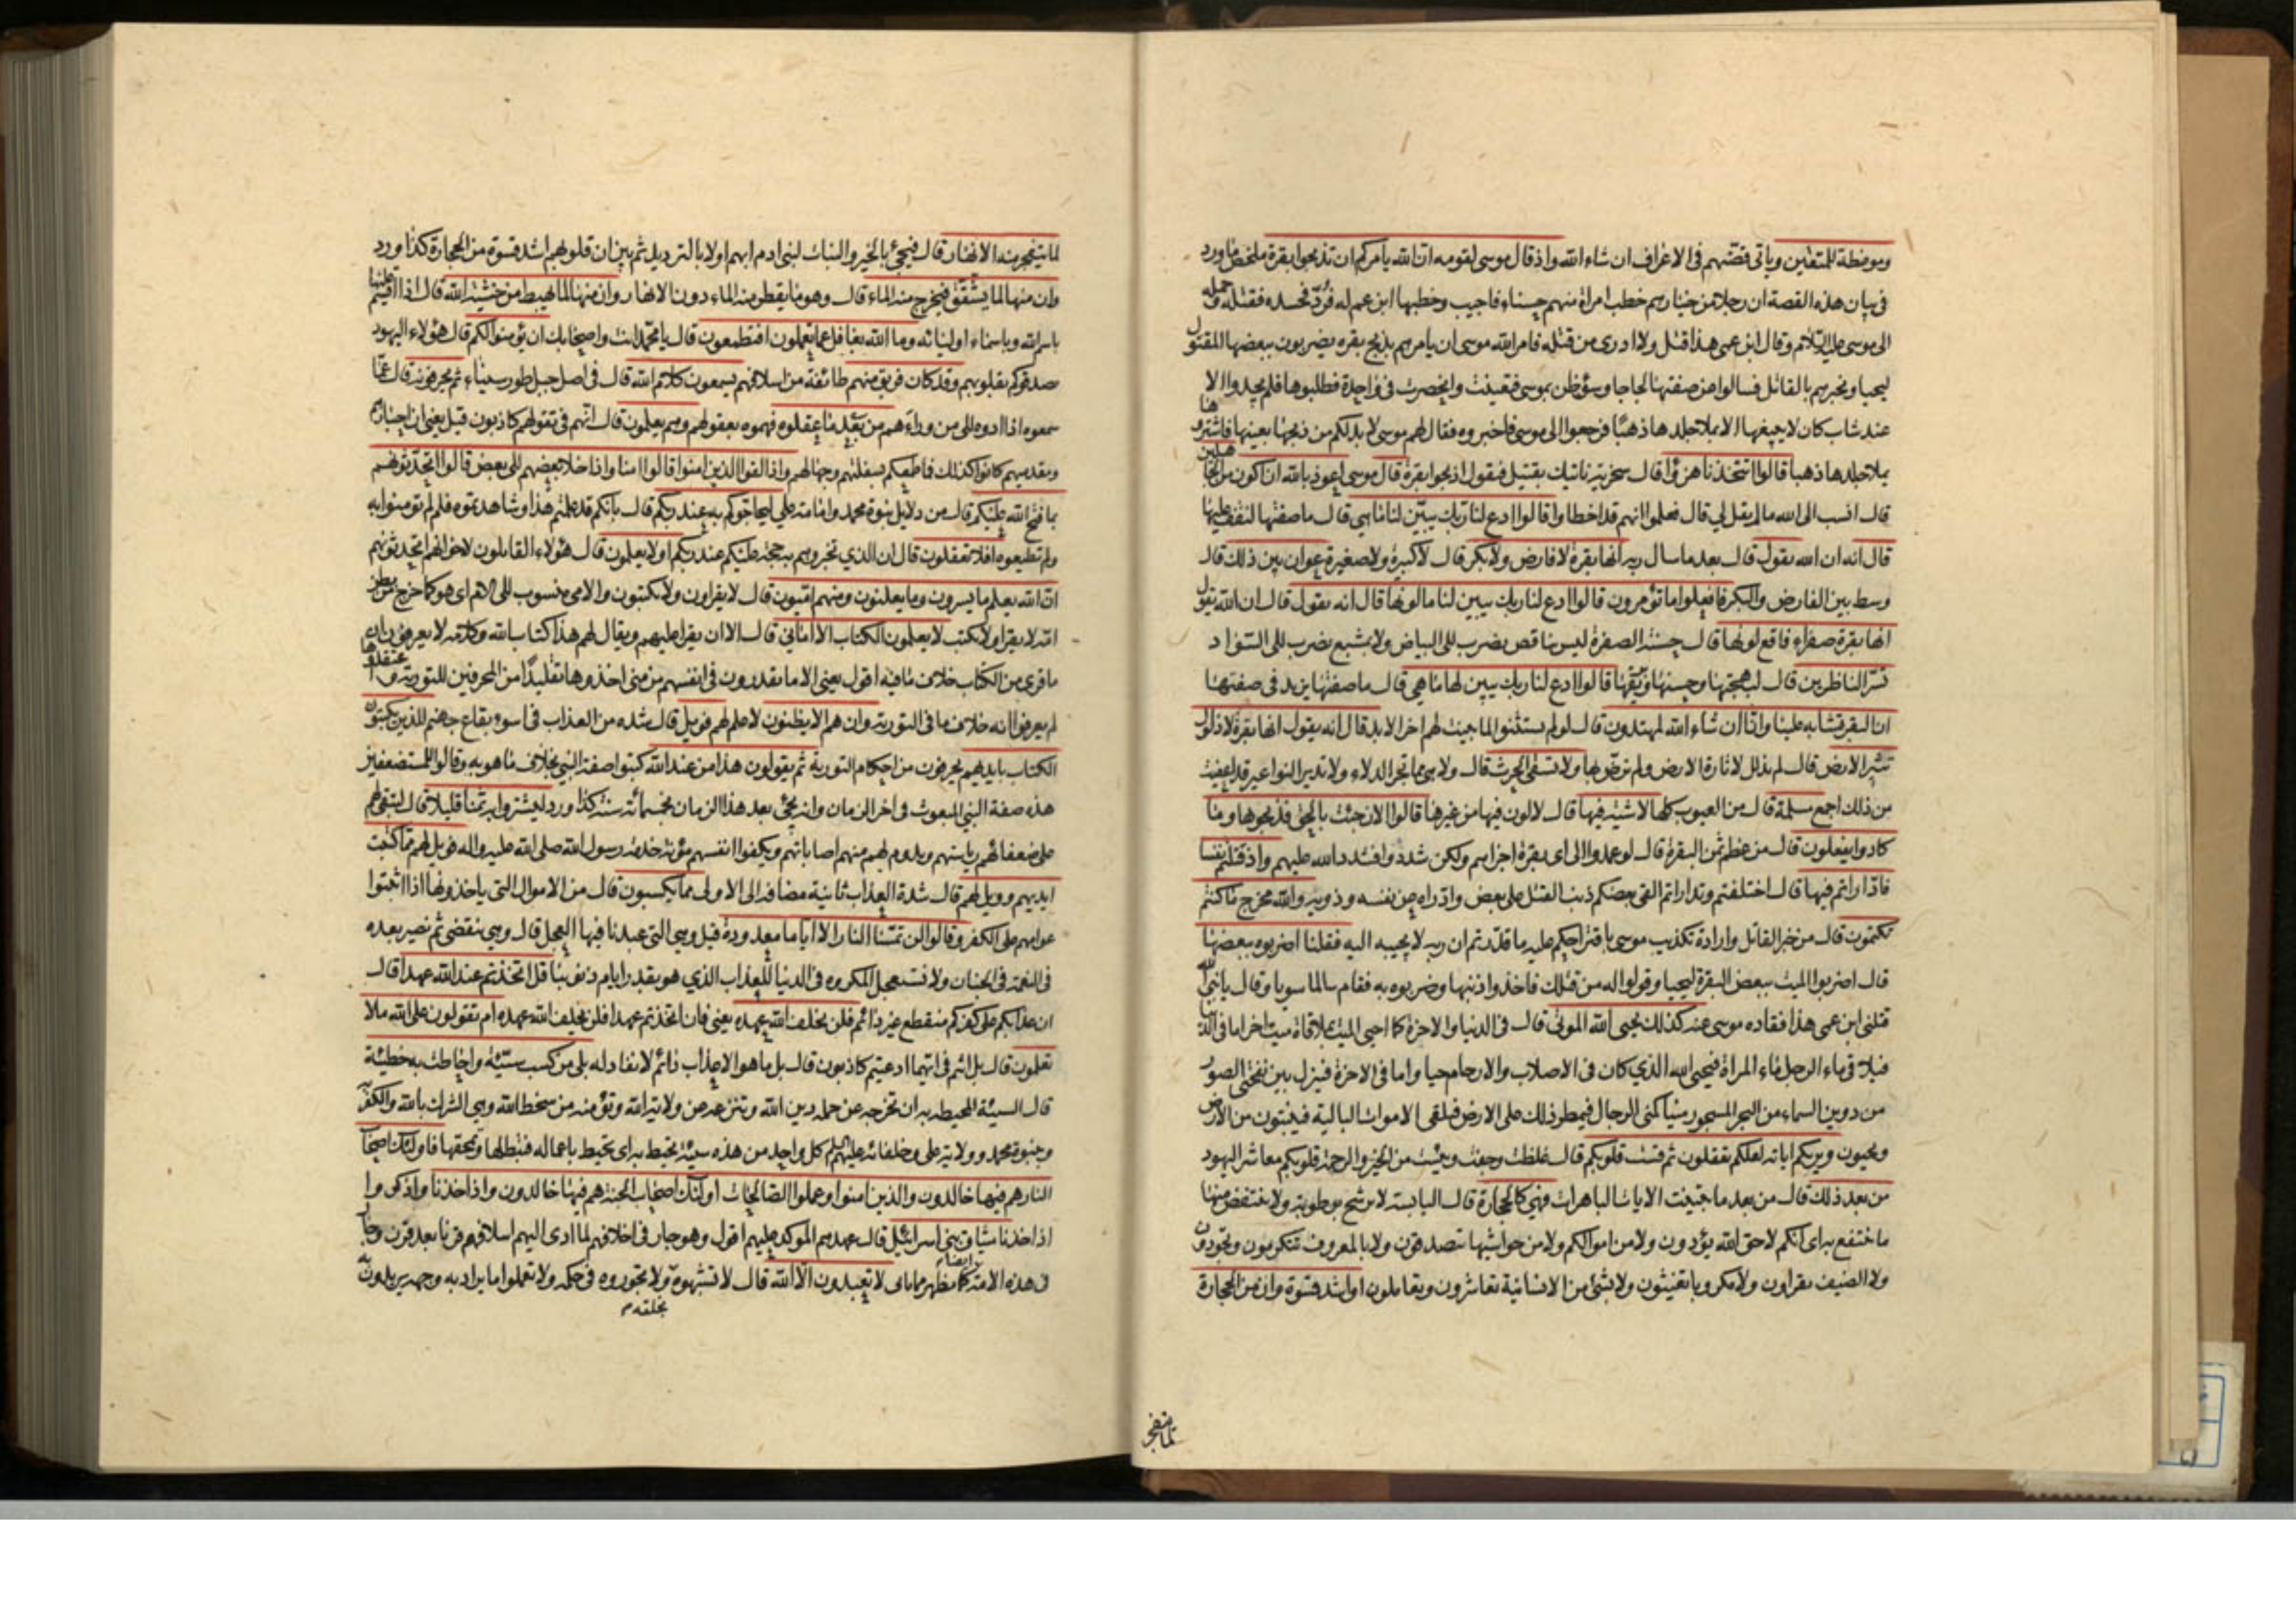 وموعظة للمتقين وياتى قصتهم فى الاعراف ان شاء الله واذ قال موسى لقومه ان الله يامركم ان تذبحوا بقرة ملخص ما ورد
فى بيان هذه القصة ان رجلا من خيارهم خطب امراة منهم حسناء فاجيب وخطبها ابن عم له فرد فحسده فقتله وحمله
الى موسى عليه السلام وقال ابن عمى هذا قتل ولا ادرى من قتله فامر الله موسى ان يامرهم بذبح بقره يضربون ببعضها المقتول
ليحيا ويخبرهم بالقاتل فسالوا من صفتها لجاجا وسوء ظن بموسى فتعينت وانحصرت فى واحدة فطلبوها فلم يجدوا الا
عند شاب كان لا يبيعها الا بملا جلدها ذهبا فرجعوا الى موسى فاخبروه فقال لهم موسى لا بد لكم من ذبحها بعينها فاشتروها
بملا جلدها ذهبا قالوا اتتخذنا هزؤا قال سخرية ناتيك بقتيل فيقول اذبحوا بقرة قال موسى اعوذ بالله ان اكون من الجاهلين
قال انسب الى الله ما لم يقل لي قال فعلموا انهم قد اخطاوا قالوا ادع لنا ربك يبين لنا ما هى قال ما صفتها لنقف عليها
قال انه ان الله يقول قال بعد ما سال ربه انها بقرة لا فارض ولا بكر قال لا كبيرة ولا صغيرة عوان بين ذلك قال
وسط بين الفارض والبكر فافعلوا ما تؤمرون قالوا ادع لنا ربك يبين لنا ما لونها قال انه يقول قال ان الله يقول
انها بقرة صفراء فاقع لونها قال حسنة الصفرة ليس بناقص يضرب الى البياض ولا بمشبع يضرب الى السواد
تسر الناظرين قال لبهجتها وحسنها وبريقها قالوا ادع لنا ربك يبين لنا ما هى قال ما صفتها يزيد فى صفتها
ان البقر تشابه علينا وانا ان شاء الله لمهتدون قال لو لم يستثنوا لما بينت لهم اخر الابد قال انه يقول انها بقرة لا ذلول
تثير الارض قال لم تذلل لاثارة الارض ولم ترض بها ولا تسقى الحرث قال ولا هى مما تجر الدلاء ولا تدير النواعير قد اعفيت
من ذلك اجمع مسلمة قال من العيوب كلها لا شية فيها قال لا لون فيها من غيرها قالوا الان جئت بالحق فذبحوها وما
كادوا يفعلون قال من عظم ثمن البقرة قال لو عمدوا الى اى بقرة اجزاهم ولكن شددوا فشدد الله عليهم واذ قتلتم نفسا
فادارأتم فيها قال اختلفتم وتداراتم القى بعضكم ذنب القتل على بعض وادراه عن نفسه وذويه والله مخرج ما كنتم
تكتمون قال من خبر القاتل وارادة تكذيب موسى باقتراحكم عليه ما قدرتم ان ربه لا يجيبه اليه فقلنا اضربوه ببعضها
قال اضربوا الميت ببعض البقرة ليحيا وقولوا له من قتلك فاخذوا ذنبها وضربوه به فقام سالما سويا وقال يا نبى الله
قتلنى ابن عمى هذا فقاده موسى عند كذلك يحيى الله الموتى قال فى الدنيا والاخرة كما احيى الميت بملاقاة ميت اخر اما فى الدنيا
فيلاقى ماء الرجل ماء المراة فيحيى الله الذى كان فى الاصلاب والارحام حيا واما فى الاخرة فينزل بين نفختى الصور
من دوين السماء من البحر المسجور منيا كمنى الرجال فيمطر ذلك على الارض فيلقى الاموات البالية فينبتون من الارض
ويحيون ويريكم اياته لعلكم تعقلون ثم قست قلوبكم قال غلظت وجفت ويبست من الخير والرحمة قلوبكم معاشر اليهود
من بعد ذلك قال من بعد ما تبينت الايات الباهرات فهي كالحجارة قال اليابسة لا ترشح برطوبة ولا ينتفض منها
ما ينتفع به اى انكم لا حق الله يؤدون ولا من اموالكم ولا من حواشيها تتصدقون ولا بالمعروف تتكرمون وتجودون
ولا الضيف تقراون ولا مكروبا تغيثون ولا بشئ من الانسانية تعاشرون وتعاملون او اشد قسوة وان من الحجارة
لما يتفجر
لما يتفجر منه الانهار قال فيجئ بالخير والنبات لبنى ادم ابهم اولا بالترديد ثم بين ان قلوبهم اشد قسوة من الحجارة كذا ورد
وان منها لما يشقق فيخرج منه الماء قال وهو ما يقطر منه الماء دون الانهار وان منها لما يهبط من خشية الله قال اذا اقسم عليها
باسم الله وباسماء اوليائه وما الله بغافل عما يعملون افتطمعون قال يا محمد انت واصحابك ان يؤمنوا لكم قال هؤلاء اليهود
يصدقوكم بقلوبهم وقد كان فريق منهم طائفة من اسلافهم يسمعون كلام الله قال فى اصل جبل طور سيناء ثم يحرفونه قال عما
سمعوه اذا ادوه الى من وراءهم من بعد ما عقلوه فهموه بعقولهم وهم يعلمون قال انهم فى تقولهم كاذبون قيل يعنى ان احبارهم
ومقدميهم كانوا كذلك فما طمعكم بسفلتهم وجهالهم واذا لقوا الذين امنوا قالوا امنا واذا خلا بعضهم الى بعض قالوا اتحدثونهم
بما فتح الله عليكم قال من دلايل نبوة محمد وامامة علي ليحاجوكم به عند ربكم قال بانكم قد علمتم هذا وشاهدتموه فلم لم تؤمنوا به
ولم تطيعوه افلا تعقلون قال ان الذي تخبرونهم به حجة عليكم عند ربكم اولا يعلمون قال هؤلاء القائلون لاخوانهم اتحدثونهم
ان الله يعلم ما يسرون وما يعلنون ومنهم اميون قال لا يقراون ولا يكتبون والامى منسوب الى الام اى هو كما خرج من بطن
امه لا يقرا ولا يكتب لا يعلمون الكتاب الا امانى قال الا ان يقرا عليهم ويقال لهم هذا كتاب الله وكلامه لا يعرفون ان
ما قرى من الكتاب خلاف ما فيه اقول يعنى الا ما يقدرون فى انفسهم من منى اخذوها تقليدا من المحرفين للتورية واعتقدوها
لم يعرفوا انه خلاف ما فى التورية وان هم الا يظنون لا علم لهم فويل قال شده من العذاب فى اسوء بقاع جهنم للذين يكتبون
الكتاب بايديهم يحرفون من احكام التورية ثم يقولون هذا من عند الله كتبوا صفة النبي بخلاف ما هو به وقالوا للمستضعفين
هذه صفة النبي المبعوث فى اخر الزمان وانه يجئ بعد هذا الزمان بخمسمائة سنة كذا ورد ليشتروا به ثمنا قليلا قال لتبقى لهم
على ضعفائهم رياستهم ويدوم لهم منهم اصاباتهم ويكفوا انفسهم مؤنة خدمة رسول الله صلى الله عليه واله فويل لهم مما كتبت
ايديهم وويل لهم قال شدة العذاب ثانية مضافه الى الاولى مما يكسبون قال من الاموال التى ياخذونها اذا اثبتوا
عوامهم على الكفر وقالوا لن تمسنا النار الا اياما معدودة قيل وهى التى عبدنا فيها العجل قال وهى تنقضى ثم نصير بعده
فى النعمة فى الجنان ولا نستعجل المكروه فى الدنيا للعذاب الذي هو بقدر ايام ذنوبنا قل اتخذتم عند الله عهدا قال
ان عذابكم على كفركم منقطع غير دائم فلن يخلف الله عهده يعنى فان اتخذتم عهدا فلن يخلف الله عهده ام تقولون على الله ما لا
تعلمون قال بل انتم فى ايهما ادعيتم كاذبون قال بل ما هو الا عذاب دائم لا نفاد له بلى من كسب سيئة واحاطت به خطيئة
قال السيئة المحيطه به ان تخرجه عن جملة دين الله وتنزعه عن ولاية الله وتؤمنه من سخط الله وهى الشرك بالله والكفر به
وبنبوة محمد وولاية على وخلفائه عليهم السلام كل واحد من هذه سيئة تحيط به اى تحيط باعماله فتبطلها وتمحقها فاولئك اصحاب
النار هم فيها خالدون والذين امنوا وعملوا الصالحات اولئك اصحاب الجنة هم فيها خالدون واذ اخذنا واذكروا
اذ اخذنا ميثاق بنى اسرائيل قال عهدهم الموكد عليهم اقول وهو جار فى اخلافهم لما ادى اليهم اسلافهم قرنا بعد قرن وجار
فى هذه الامة ايضا كما يظهر مما ياتى لا تعبدون الا الله قال لا تشبهوه بخلقه ولا تجوروه فى حكمه ولا تعملوا ما يراد به وجهه تريدون به